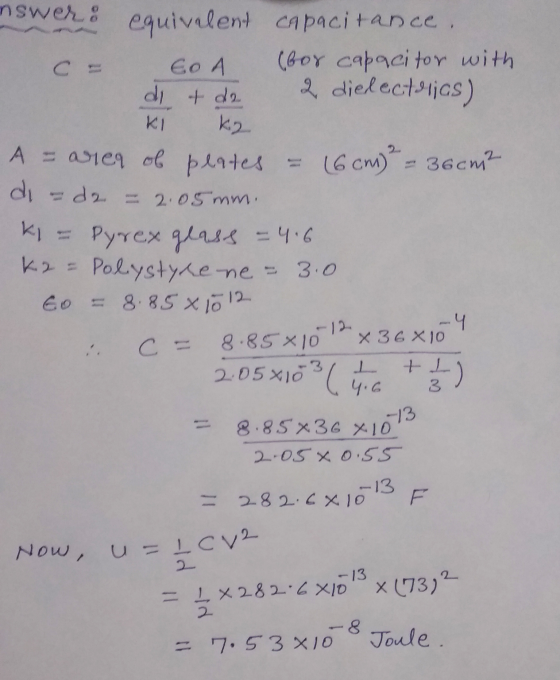 nswer: equivalent capacitance.
C = ϵ0 A / (d1/k1 + d2/k2) (for capacitor with 2 dielectrics)
A = area of plates = (6 cm)² = 36 cm²
d1 = d2 = 2.05 mm.
k1 = Pyrex glass = 4.6
k2 = Polystyrene = 3.0
ϵ0 = 8.85 × 10⁻¹²
∴ C = 8.85 × 10⁻¹² × 36 × 10⁻⁴ / 2.05 × 10⁻³ (1/4.6 + 1/3)
= 8.85 × 36 × 10⁻¹³ / 2.05 × 0.55
= 282.6 × 10⁻¹³ F
Now, U = 1/2 CV²
= 1/2 × 282.6 × 10⁻¹³ × (73)²
= 7.53 × 10⁻⁸ Joule.